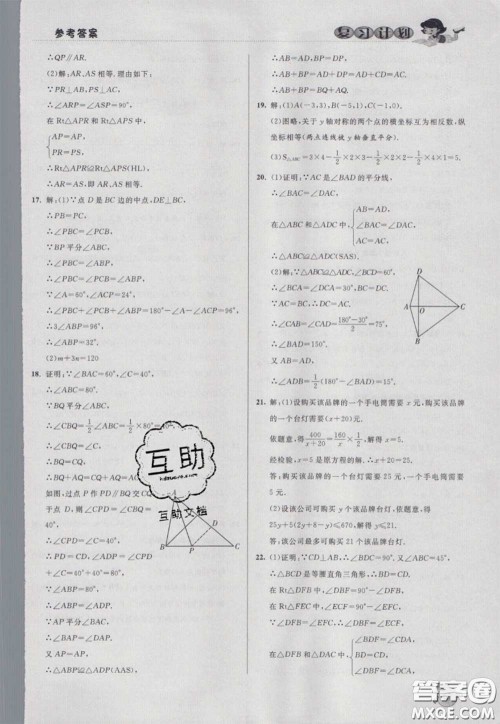 参考答案
复习计划
∴QP∥AR.
(2)解:AR,AS相等.理由如下:
∵PR⊥AB,PS⊥AC,
∴∠ARP=∠ASP=90°,
在Rt△APR和Rt△APS中
AP=AP,
PR=PS,
∴Rt△ARP≌Rt△APS(HL),
∴AR=AS,即AR,AS相等.
17. 解:(1)∵点D是BC边的中点,DE⊥BC,
∴PB=PC,
∴∠PBC=∠PCB,
∵BP平分∠ABC,
∴∠PBC=∠ABP,
∵∠A=80°,∠ACP=24°,
∴∠PBC+∠PCB+∠ABP=180°-∠A-∠ACP=96°,
∴3∠ABP=96°,
∴∠ABP=32°.
(2)m+3n=120
18. 证明:∵∠BAC=60°,∠C=40°,
∴∠ABC=80°.
∵BQ平分∠ABC,
∴∠CBQ=1/2∠ABC=1/2×80°=40°
∴∠CBQ=∠C,
∴BQ=CQ,
∴BQ+AQ=CQ+AQ=AC
如图,过点P作PD∥BQ交CQ
于点D,则∠CPD=∠CBQ=40°
∴∠CPD=∠C=40°
∴PD=CD,∠ADP=∠CPD
+∠C=40°+40°=80°,
∴∠ABC=∠ADP
∵AP平分∠BAC,
∴∠BAP=∠CAP
∴在△ABP与△ADP中
∠ABP=∠ADP
∠BAP=∠DAP,
AP=AP,
∴△ABP≌△ADP(AAS),
A
B
P
C
∴AB=AD,BP=DP,
∴AB+BP=AD+DP=AD+CD=AC,
∴BQ+AQ=AB+BP.
19. 解:(1)A(-3,3),B(-5,1),C(-1,0).
(2)图略,关于y轴对称的两个点的横坐标互为相反数,纵
坐标相等(两点连线被y轴垂直平分).
20. (1)证明:∵AC是∠BAD的平分线,
∴∠BAC=∠DAC,
在△ABC和△ADC中,
AB=AD,
∠BAC=∠DAC,
AC=AC,
∴△ABC≌△ADC(SAS).
(2)解:∵△ABC≌△ADC,∠BCD=60°,
∴∠BCA=∠DCA=30°,BC=DC.
∵AC=BC,∴AC=DC.
∴∠CAD=∠CDA=(180°-30°)/2=75°,
又AB=AD,
∴∠ADB=∠ABD=15°.
D
A
C
B
21. 解:(1)设购买该品牌的一个手电筒需要x元,则购买该品牌
的一个台灯需要(x+20)元.
依题意,得400/(x+20)=160/x×1/2,
经检验,x=5是原方程的解.∴x+20=25.
答:购买该品牌一个台灯需要25元,一个手电筒需要
5元.
(2)设公司可以购买y个该品牌的台灯,依题意,得
25y+5(2y+8-y)≤670,解得y≤21.
答:该公司最多可购买21个该品牌台灯.
22. (1)证明:∵CD⊥AB,∠ABC=45°,
∴△BCD是等腰直角三角形,
∴BD=CD.
在Rt△DFB中,∠DBF=90°-∠DFB
在Rt△EFC中,∠ECF=90°-∠EFC
又∵∠DFB=∠EFC,
∴∠DBF=∠ECF,
在△DFB和△DAC中,
∠BDF=∠CDA,
BD=CD,
∠DBF=∠DCA,
互助
互助文档
答案圈
MXQE.COM